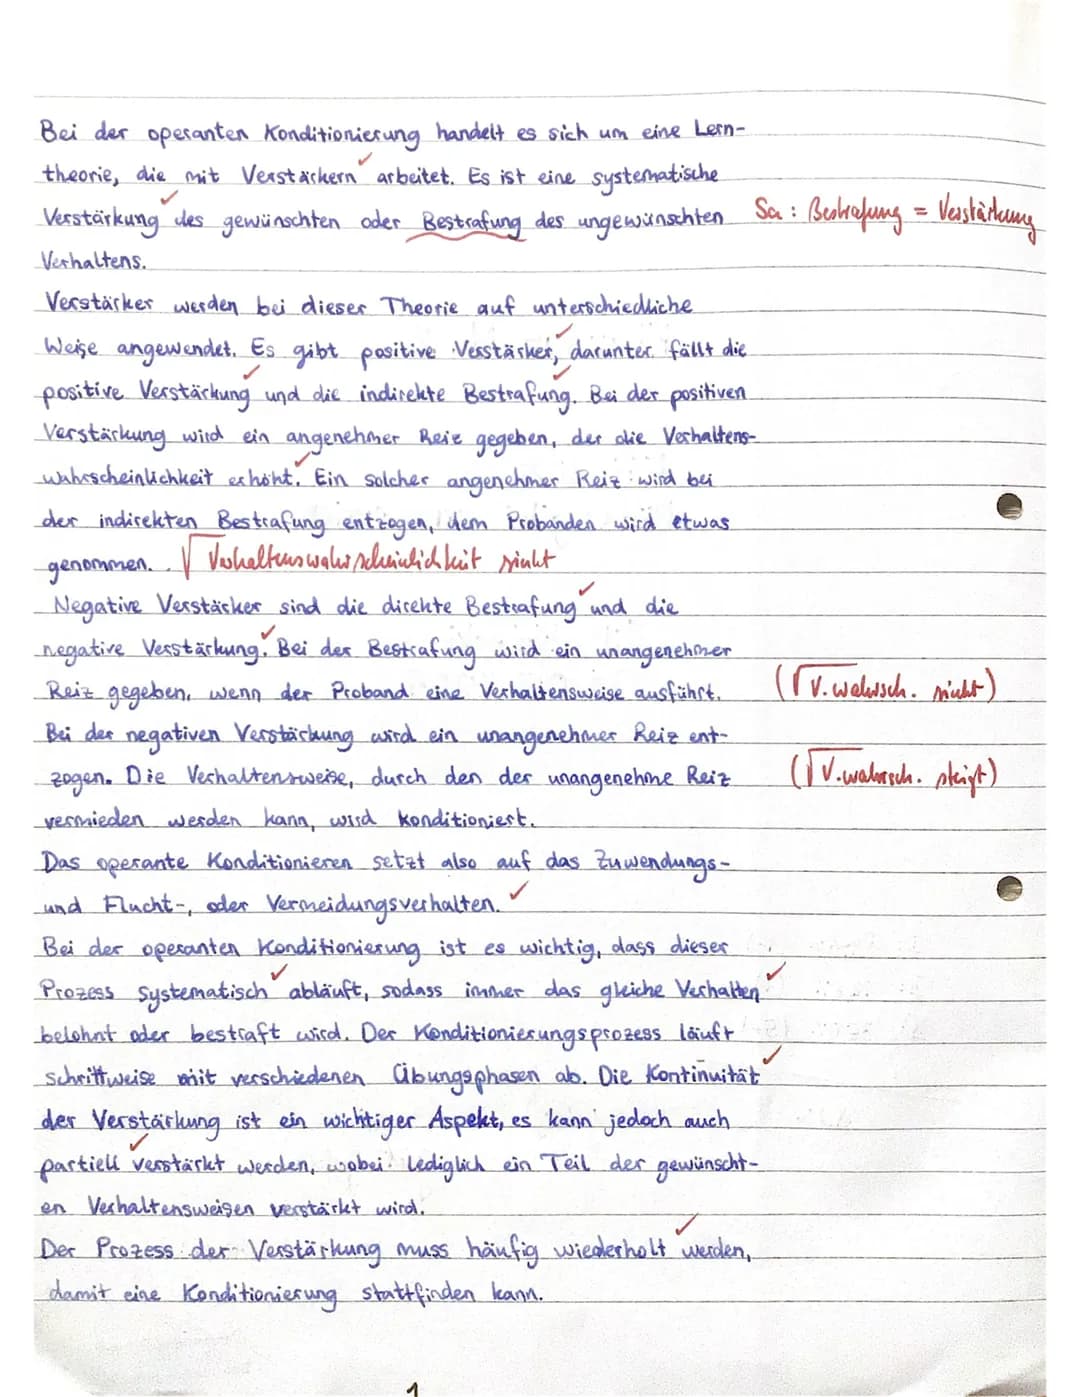 Bei der operanten Konditionierung handelt es sich um eine Lern-
theorie, die mit Verstärkern arbeitet. Es ist eine systematische
Verstärkung des gewünschten oder Bestrafung des ungewünschten Sa: Bestrafung = Verstärkung
Verhaltens.
Verstärker werden bei dieser Theorie auf unterschiedliche
Weise angewendet. Es gibt positive Verstärker, darunter fällt die
positive Verstärkung und die indirekte Bestrafung. Bei der positiven
Verstärkung wird ein angenehmer Reiz gegeben, der die Verhaltens-
wahrscheinlichkeit erhöht. Ein solcher angenehmer Reiz wird bei
der indirekten Bestrafung entzogen, dem Probanden wird etwas
genommen. √ Verhaltenswahrscheinlichkeit sinkt
Negative Verstärker sind die direkte Bestrafung und die
negative Verstärkung. Bei der Bestrafung wird ein unangenehmer
Reiz gegeben, wenn der Proband eine Verhaltensweise ausführt. (√ V.wahrsch. sinkt)
Bei der negativen Verstärkung wird ein unangenehmer Reiz ent-
zogen. Die Verhaltensweise, durch den der unangenehme Reiz (√ V.wahrsch. steigt)
vermieden werden kann, wird konditioniert.
Das operante Konditionieren setzt also auf das Zuwendungs-
und Flucht-, oder Vermeidungsverhalten.
Bei der operanten Konditionierung ist es wichtig, dass dieser
Prozess systematisch abläuft, sodass immer das gleiche Verhalten
belohnt oder bestraft wird. Der Konditionierungsprozess läuft
schrittweise mit verschiedenen Übungsphasen ab. Die Kontinuität
der Verstärkung ist ein wichtiger Aspekt, es kann jedoch auch
partiell verstärkt werden, wobei lediglich ein Teil der gewünscht-
en Verhaltensweisen verstärkt wird.
Der Prozess der Verstärkung muss häufig wiederholt werden,
damit eine Konditionierung stattfinden kann.
1